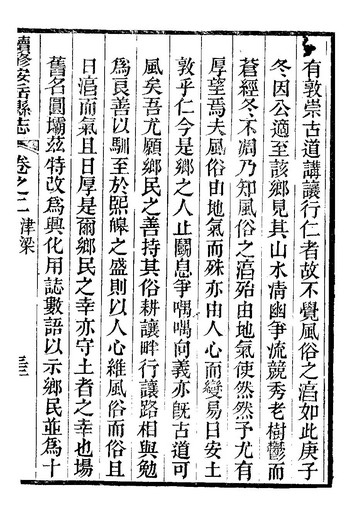 有敦崇古道講讓行仁者故不覺風俗之湻如此庚子
冬因公適至該鄉見其山水清幽爭流競秀老樹鬱而
蒼經冬不凋乃知風俗之湻殆由地氣使然然予尤有
厚望焉夫風俗由地氣而殊亦由人心而變易曰安土
敦乎仁今是鄉之人止鬬息爭喁喁向義亦旣古道可
風矣吾尤願鄉民之善持其俗耕讓畔行讓路相與勉
為良善以馴至於熙皡之盛則以人心維風俗而俗且
日湻而氣且日厚是爾鄉民之幸亦守土者之幸也場
舊名圓壩茲特改為興化用誌數語以示鄉民並為十
續修安岳縣志
卷之二 津梁
三三